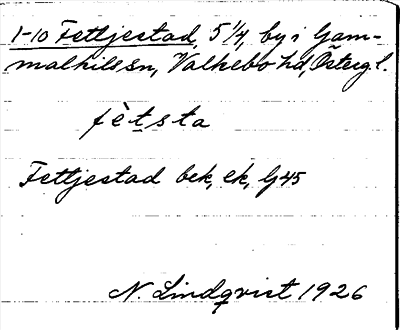 1-10 Fettjestad, 5 1/4, by i Gam-
malkils sn, Valkebo hd, Östergl.
fètsta
Fettjestad bek, ek, Gj 45
N. Lindqvist 1926